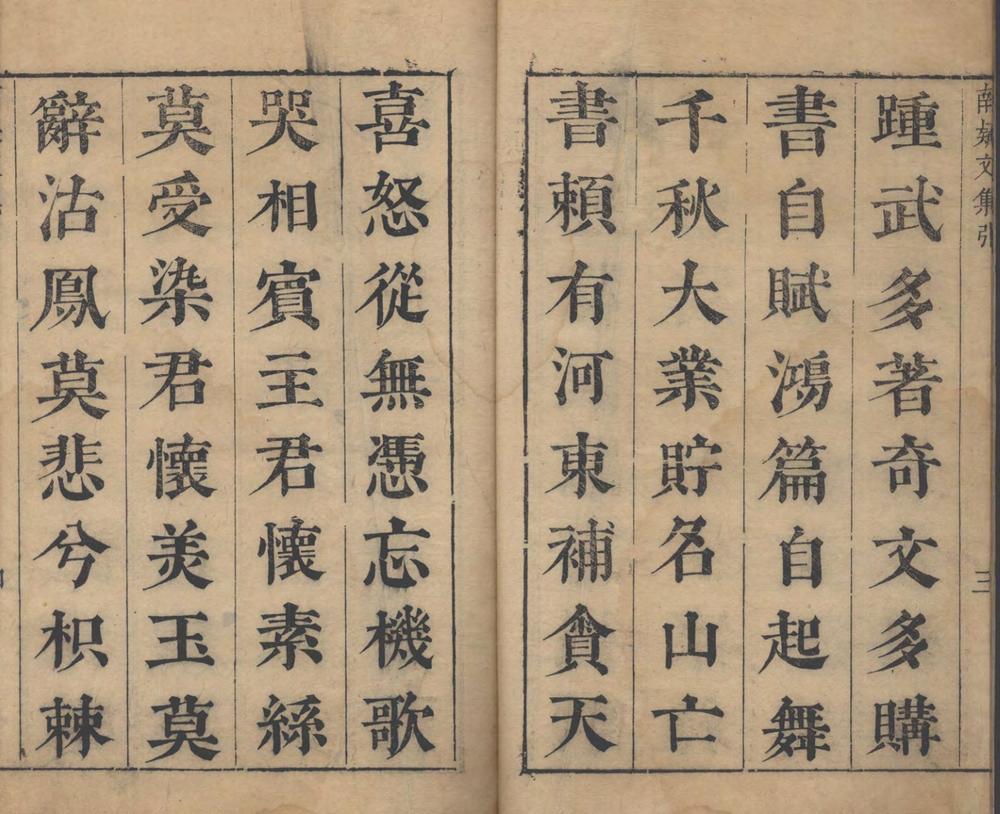 南　文集引
三
踵武多著奇文多購
書自賦鴻篇自起舞
千秋大業貯名山亡
書頼有河東補貪天
喜怒從無憑忘機歌
哭相賓主君懷素絲
莫受染君懷美玉莫
辭沽鳳莫悲兮枳棘